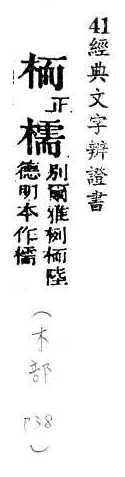 41經典文字辨證書
栭正檽別爾雅栵栭陸
德明本作檽
(木部 P38)